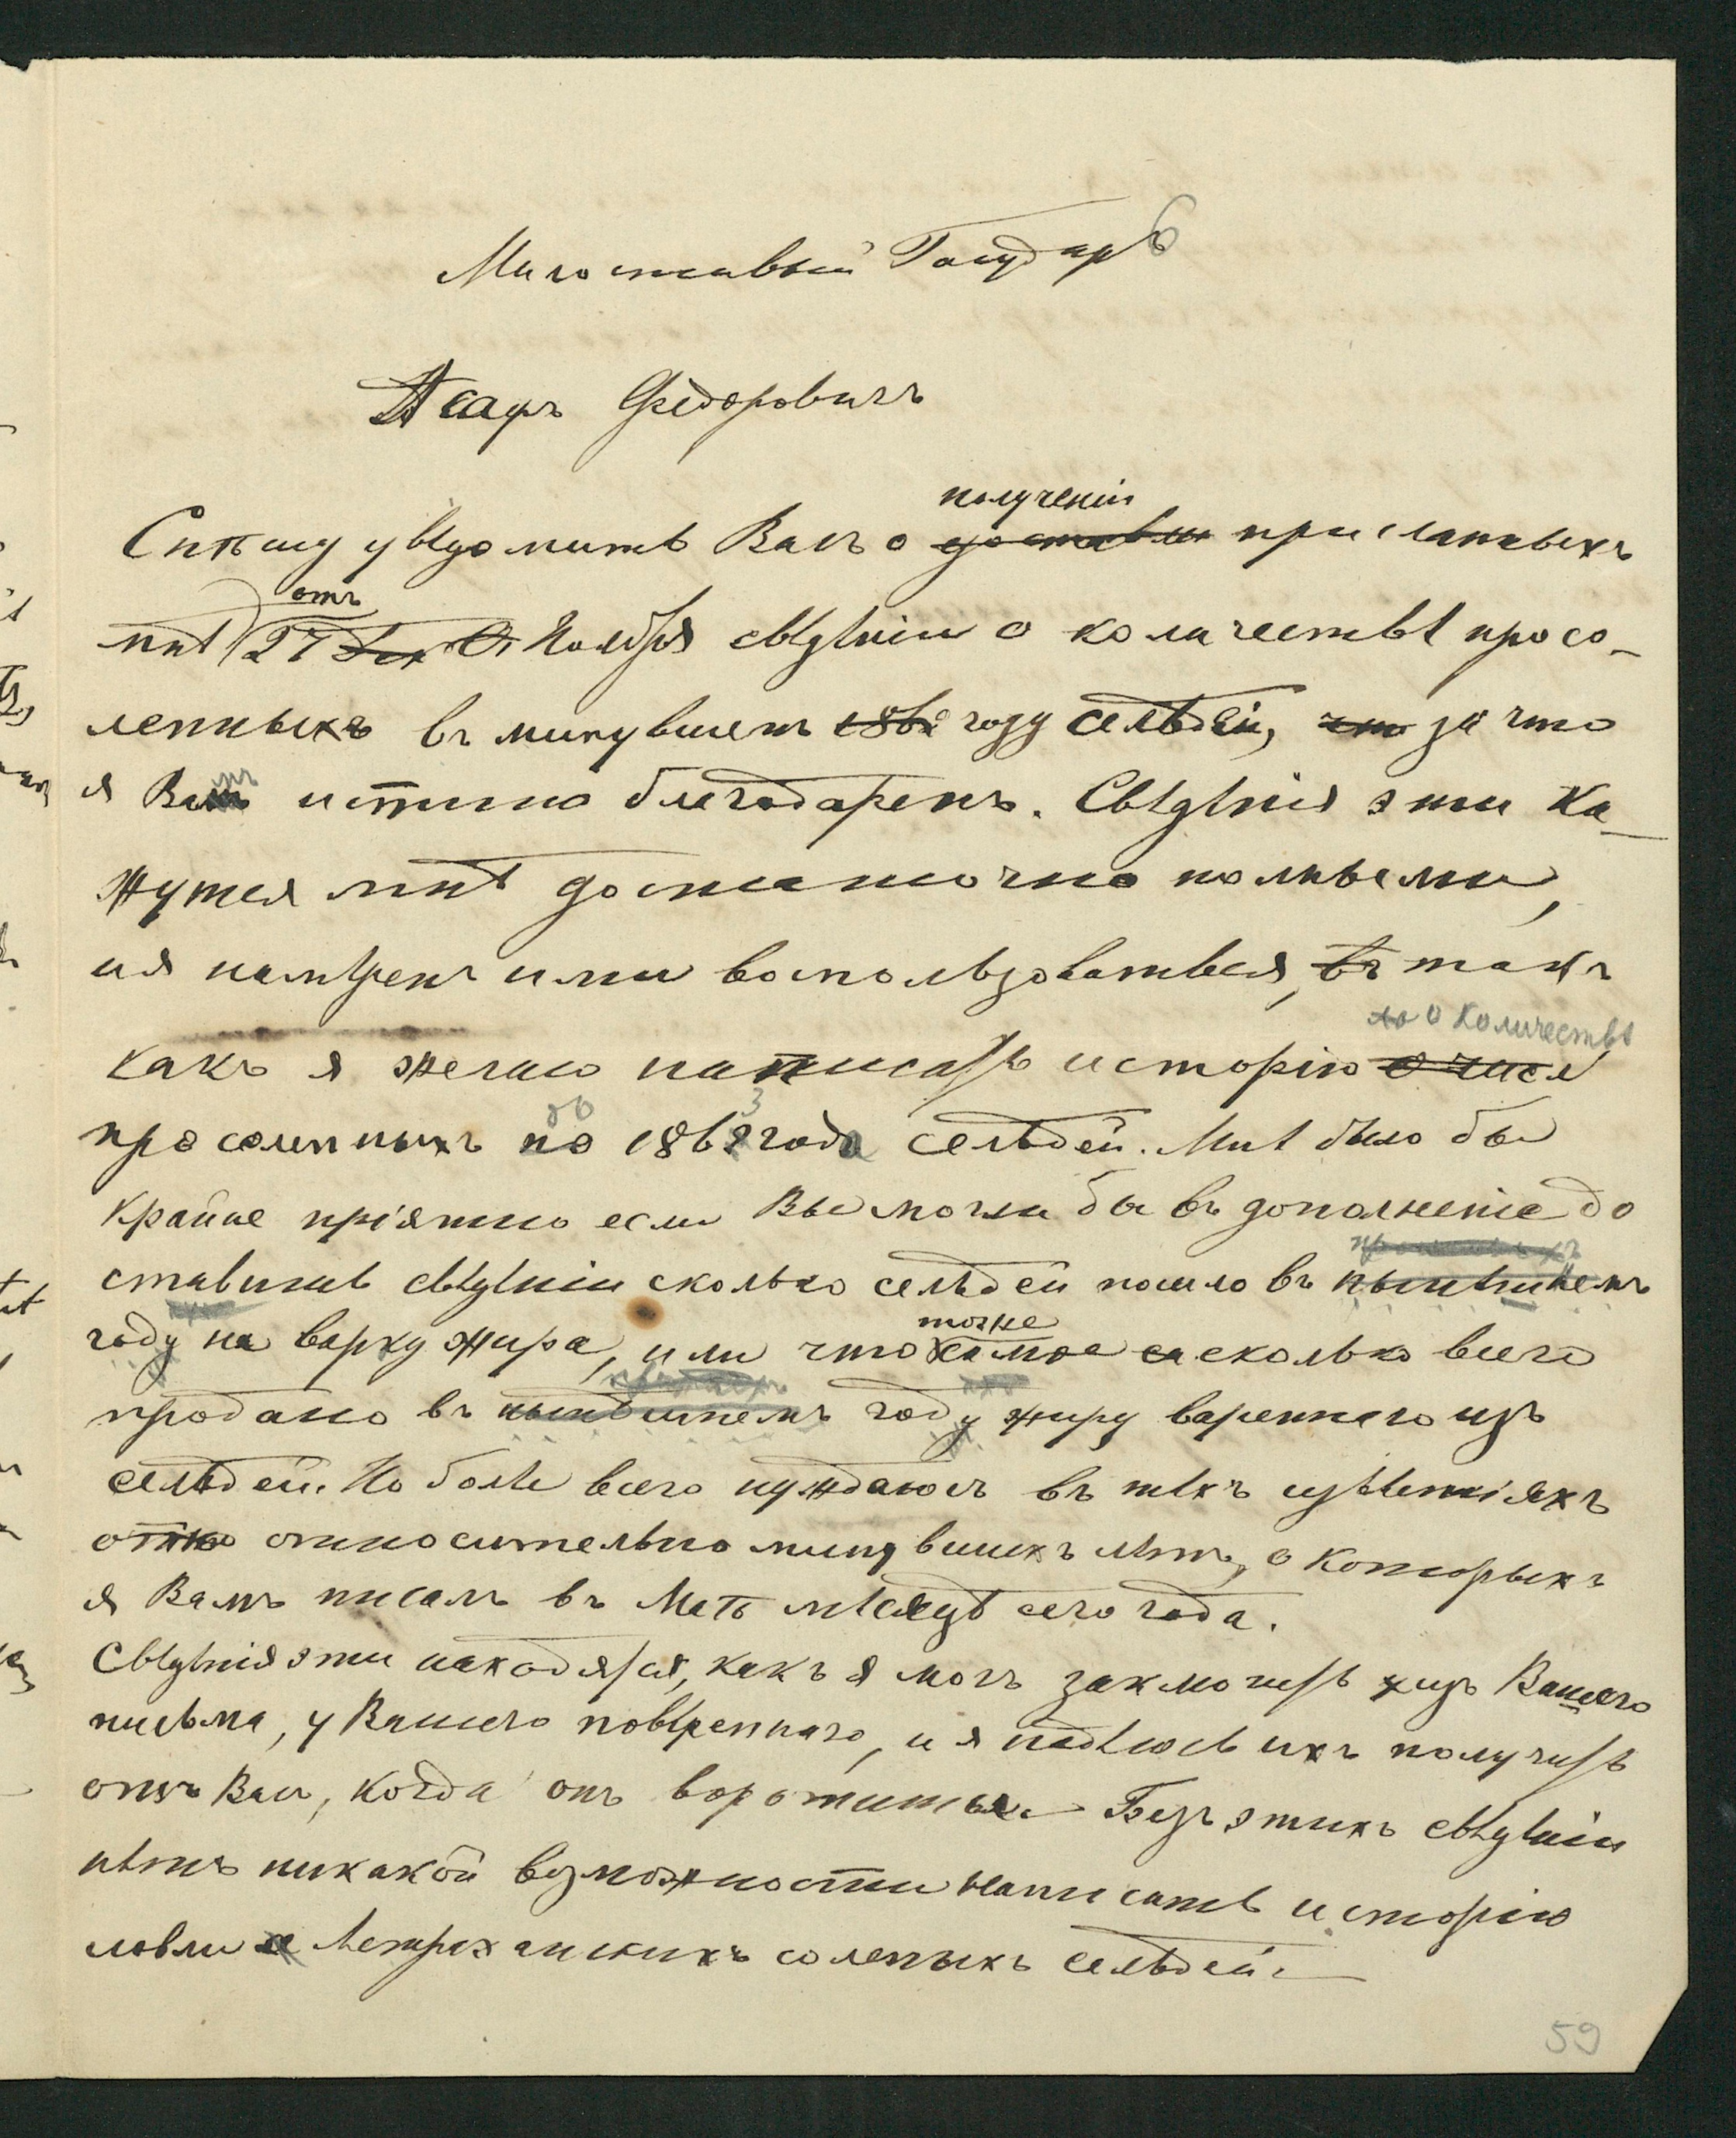 Милостивый Государь
Асафъ Федоровичъ
получении
Спѣшу увѣдомить Васъ о доставл присланныхъ
отъ
мнѣ 27 Ноября свѣдѣнiи о количествѣ просо-
ленныхъ въ минувшемъ 1862 году сельдей, что за что
я Вамъ истинно благодаренъ. Свѣдѣнiя эти ка-
жутся мнѣ достаточно полными,
и я намѣренъ ими воспользоваться, въ такъ
ло о количествѣ
какъ я желаю написать исторiю о числѣ
до 3
просоленныхъ по 1862 года сельдей. Мнѣ было бы
крайне прiятно если Вы могли бы въ дополненiе до
ставить свѣдѣнiи сколько сельдей пошло въ нынѣшнемъ
тоже
году на варку жира, или что самое сколько всего
продано въ нынѣшнемъ году жиру вареннаго изъ
сельдей. Но болѣе всего нуждаюсь въ тѣхъ свѣденiяхъ
отно относительно минувшихъ лѣтъ, о которыхъ
я Вамъ писалъ въ Маѣ мѣсяцѣ сего года.
Свѣдѣнiя эти находятся, какъ я могъ заключить изъ Вашего
письма, у Вашего повѣреннаго, и я надѣюсь ихъ получить
отъ Васъ, когда онъ воротиться. Безъ этихъ свѣдѣнiи
нѣтъ никакой возможности написать исторiю
ловли и Астраханскихъ соленыхъ сельдей.
59